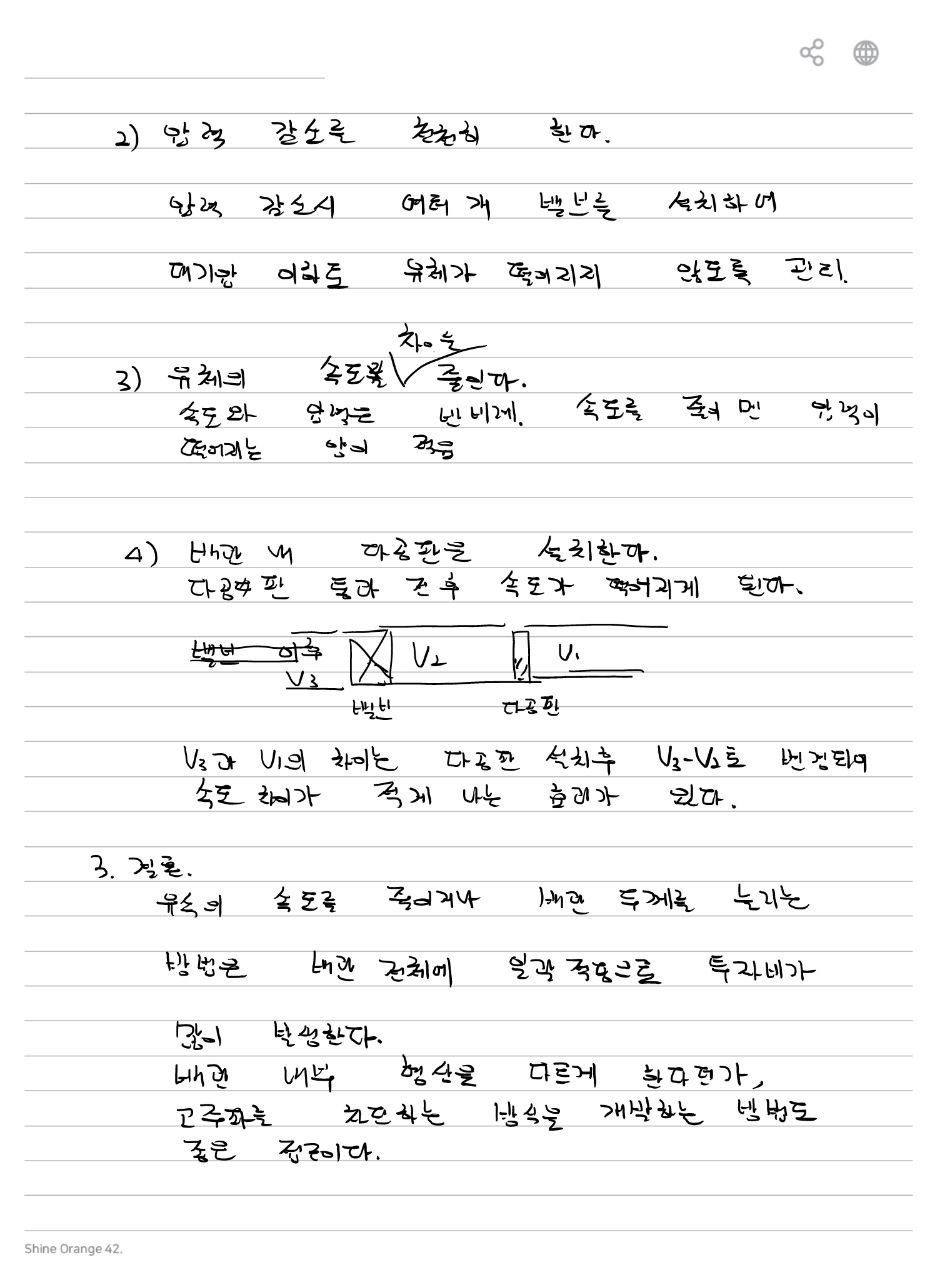 2) 압력 감소를 천천히 한다.
압력 감소시 여러 개 밸브를 설치하여
대기압 이하로 유체가 떨어지지 않도록 관리.
차이를
3) 유체의 속도 줄인다.
속도와 압력은 반비례. 속도를 줄이면 압력이
떨어지는 양이 적음
4) 배관 내 다공판을 설치한다.
다공판 통과 전후 속도가 떨어지게 된다.
밸브 이후 V2 V1
V3
밸브 다공판
V3과 V1의 차이는 다공판 설치후 V3-V2로 변경되어
속도 차이가 적게 나는 효과가 있다.
3. 결론.
유속의 속도를 줄이거나 배관 두께를 늘리는
방법은 배관 전체에 일괄 적용으로 투자비가
많이 발생한다.
배관 내부 형상을 다르게 한다던가,
고주파를 차단하는 방식을 개발하는 방법도
좋은 접근이다.
Shine Orange 42.